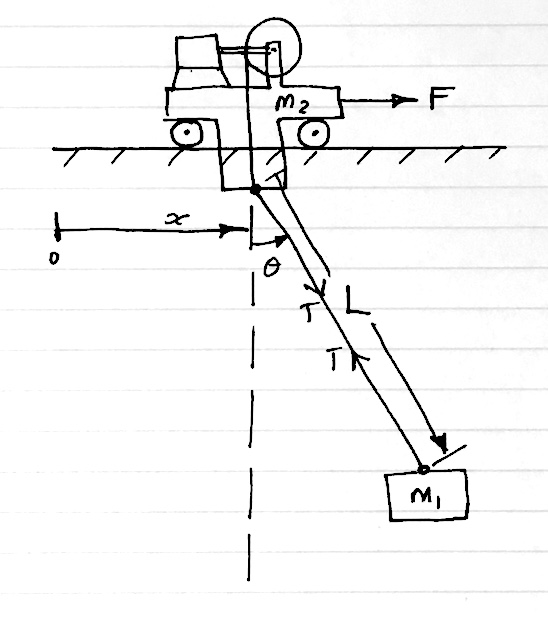 m₂
F
x
0
θ
T
L
T
m₁